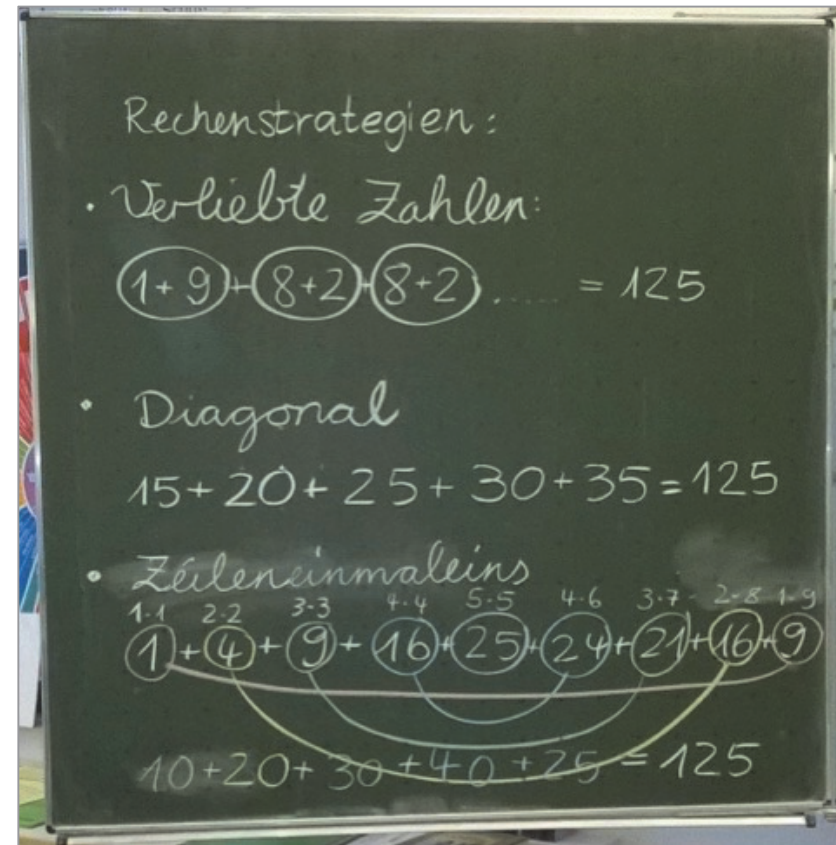 Rechenstrategien:
• Verliebte Zahlen:
(1+9)+(8+2)+(8+2)..... = 125
• Diagonal
15+20+25+30+35=125
• Zeileneinmaleins
1·1 2·2 3·3 4·4 5·5 4·6 3·7 2·8 1·9
1+4+9+16+25+24+21+16+9
10+20+30+40+25=125